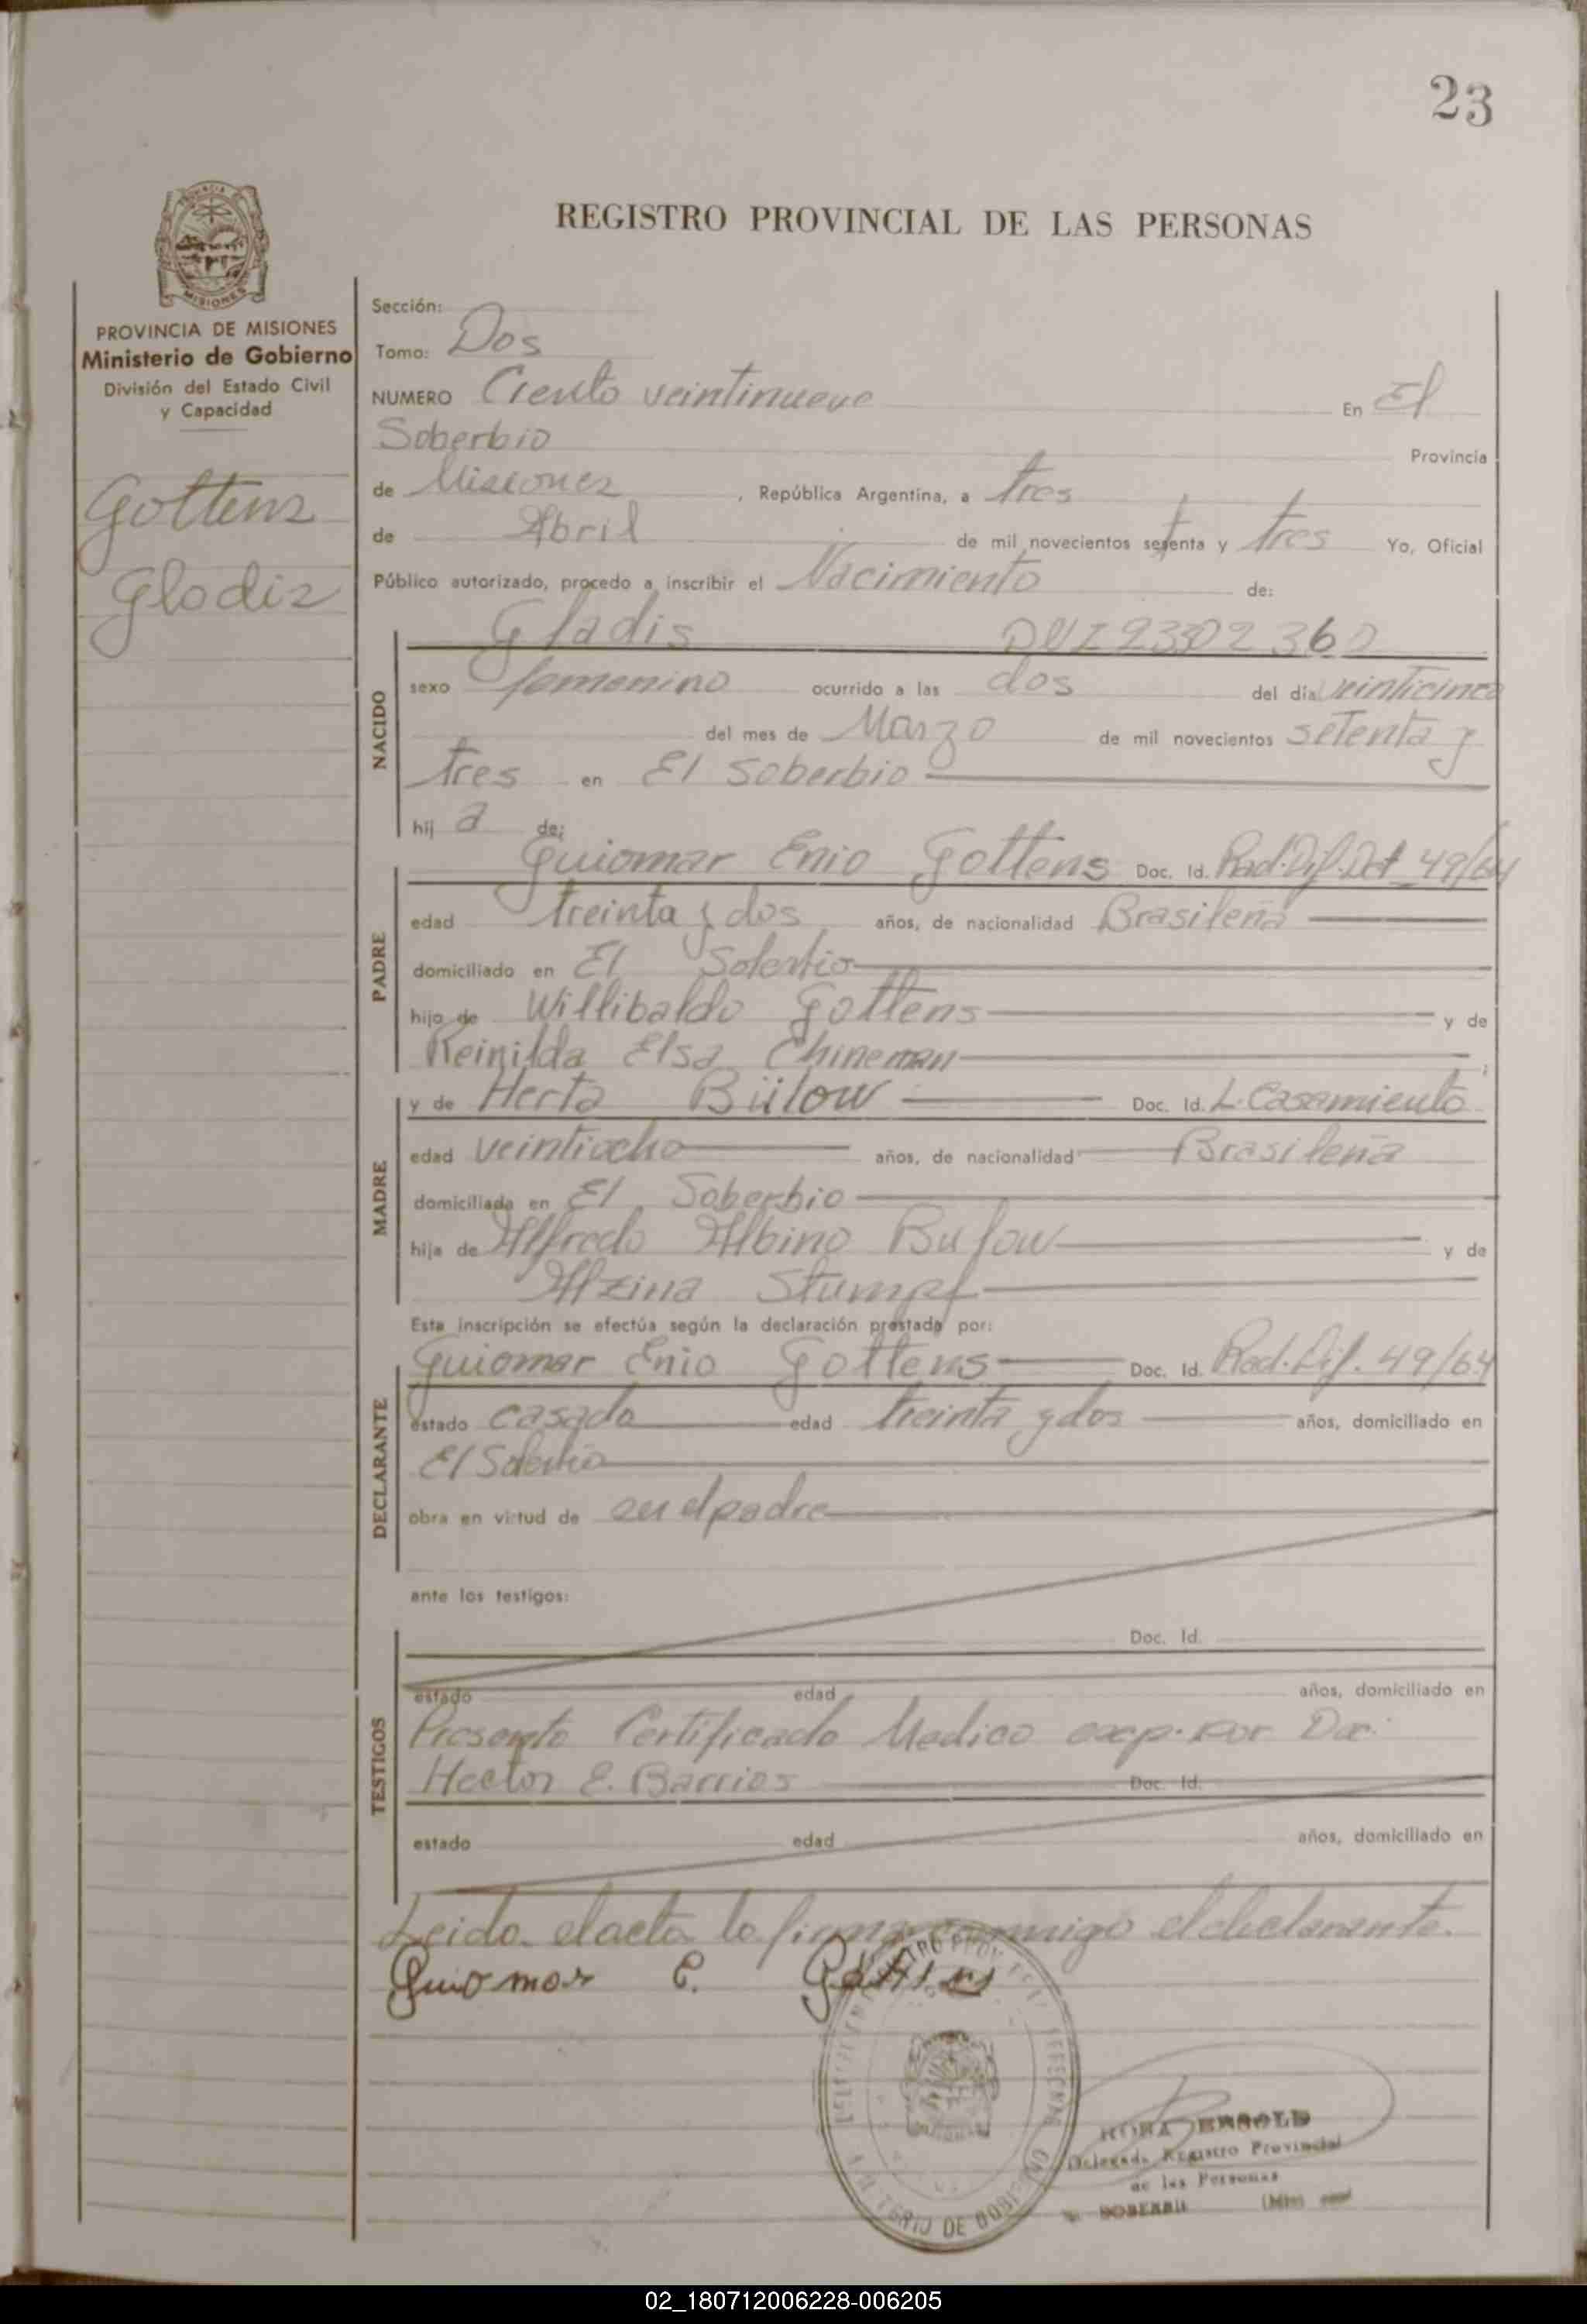 23
REGISTRO PROVINCIAL DE LAS PERSONAS
MISIONES
PROVINCIA DE MISIONES
Ministerio de Gobierno
División del Estado Civil
y Capacidad
Gottens
Gladis
Sección:
Tomo: Dos
NUMERO Ciento veintinueve En El
Soberbio Provincia
de Misiones, República Argentina, a tres
de Abril de mil novecientos setenta y tres Yo, Oficial
Público autorizado, procedo a inscribir el Nacimiento de:
Gladis
NACIDO
sexo femenino ocurrido a las dos del día veinticinco
del mes de Marzo de mil novecientos setenta y
tres en El Soberbio
hij a de:
PADRE
Guiomar Enio Gottens Doc. Id. Rad. Dif. 49/64
edad treinta y dos años, de nacionalidad Brasileña
domiciliado en El Soberbio
hijo de Willibaldo Gottens y de
Reinilda Elsa Chineman
MADRE
y de Herta Bülow Doc. Id. L. Casamiento
edad veintiocho años, de nacionalidad Brasileña
domiciliada en El Soberbio
hija de Alfredo Albino Bulow y de
Alzina Stumpf
Esta inscripción se efectúa según la declaración prestada por:
DECLARANTE
Guiomar Enio Gottens Doc. Id. Rad. Dif. 49/64
estado casado edad treinta y dos años, domiciliado en
El Soberbio
obra en virtud de ser el padre
ante los testigos:
TESTIGOS
Doc. Id.
estado edad años, domiciliado en
Presento Certificado Medico exp. por Dr.
Hector E. Barrios Doc. Id.
estado edad años, domiciliado en
Leida el acta la firma conmigo el declarante.
Guiomar E. Gottens
MINISTERIO DE GOBIERNO
Delegada Registro Provincial
de las Personas
SOBERBIO (Mnes)
02_180712006228-006205